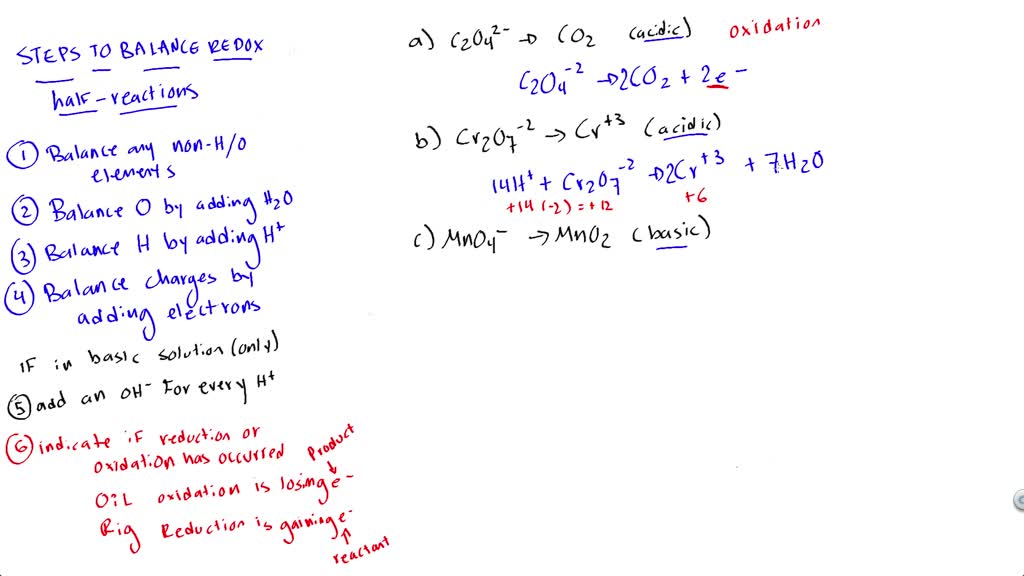 STEPS TO BALANCE REDOX
half-reactions
① Balance any non-H/O
elements
② Balance O by adding H₂O
③ Balance H by adding H⁺
④ Balance charges by
adding electrons
IF in basic solution (only)
⑤ add an OH⁻ For every H⁺
⑥ indicate iF reduction or
oxidation has occurred
Product
OiL oxidation is losing e⁻
Rig Reduction is gaining e⁻
reactant
a) C₂O₄²⁻ → CO₂ (acidic) oxidation
C₂O₄⁻² → 2CO₂ + 2e⁻
b) Cr₂O₇⁻² → Cr⁺³ (acidic)
14H⁺ + Cr₂O₇⁻² → 2Cr⁺³ + 7H₂O
+14 (-2) = +12 +6
c) MnO₄⁻ → MnO₂ (basic)